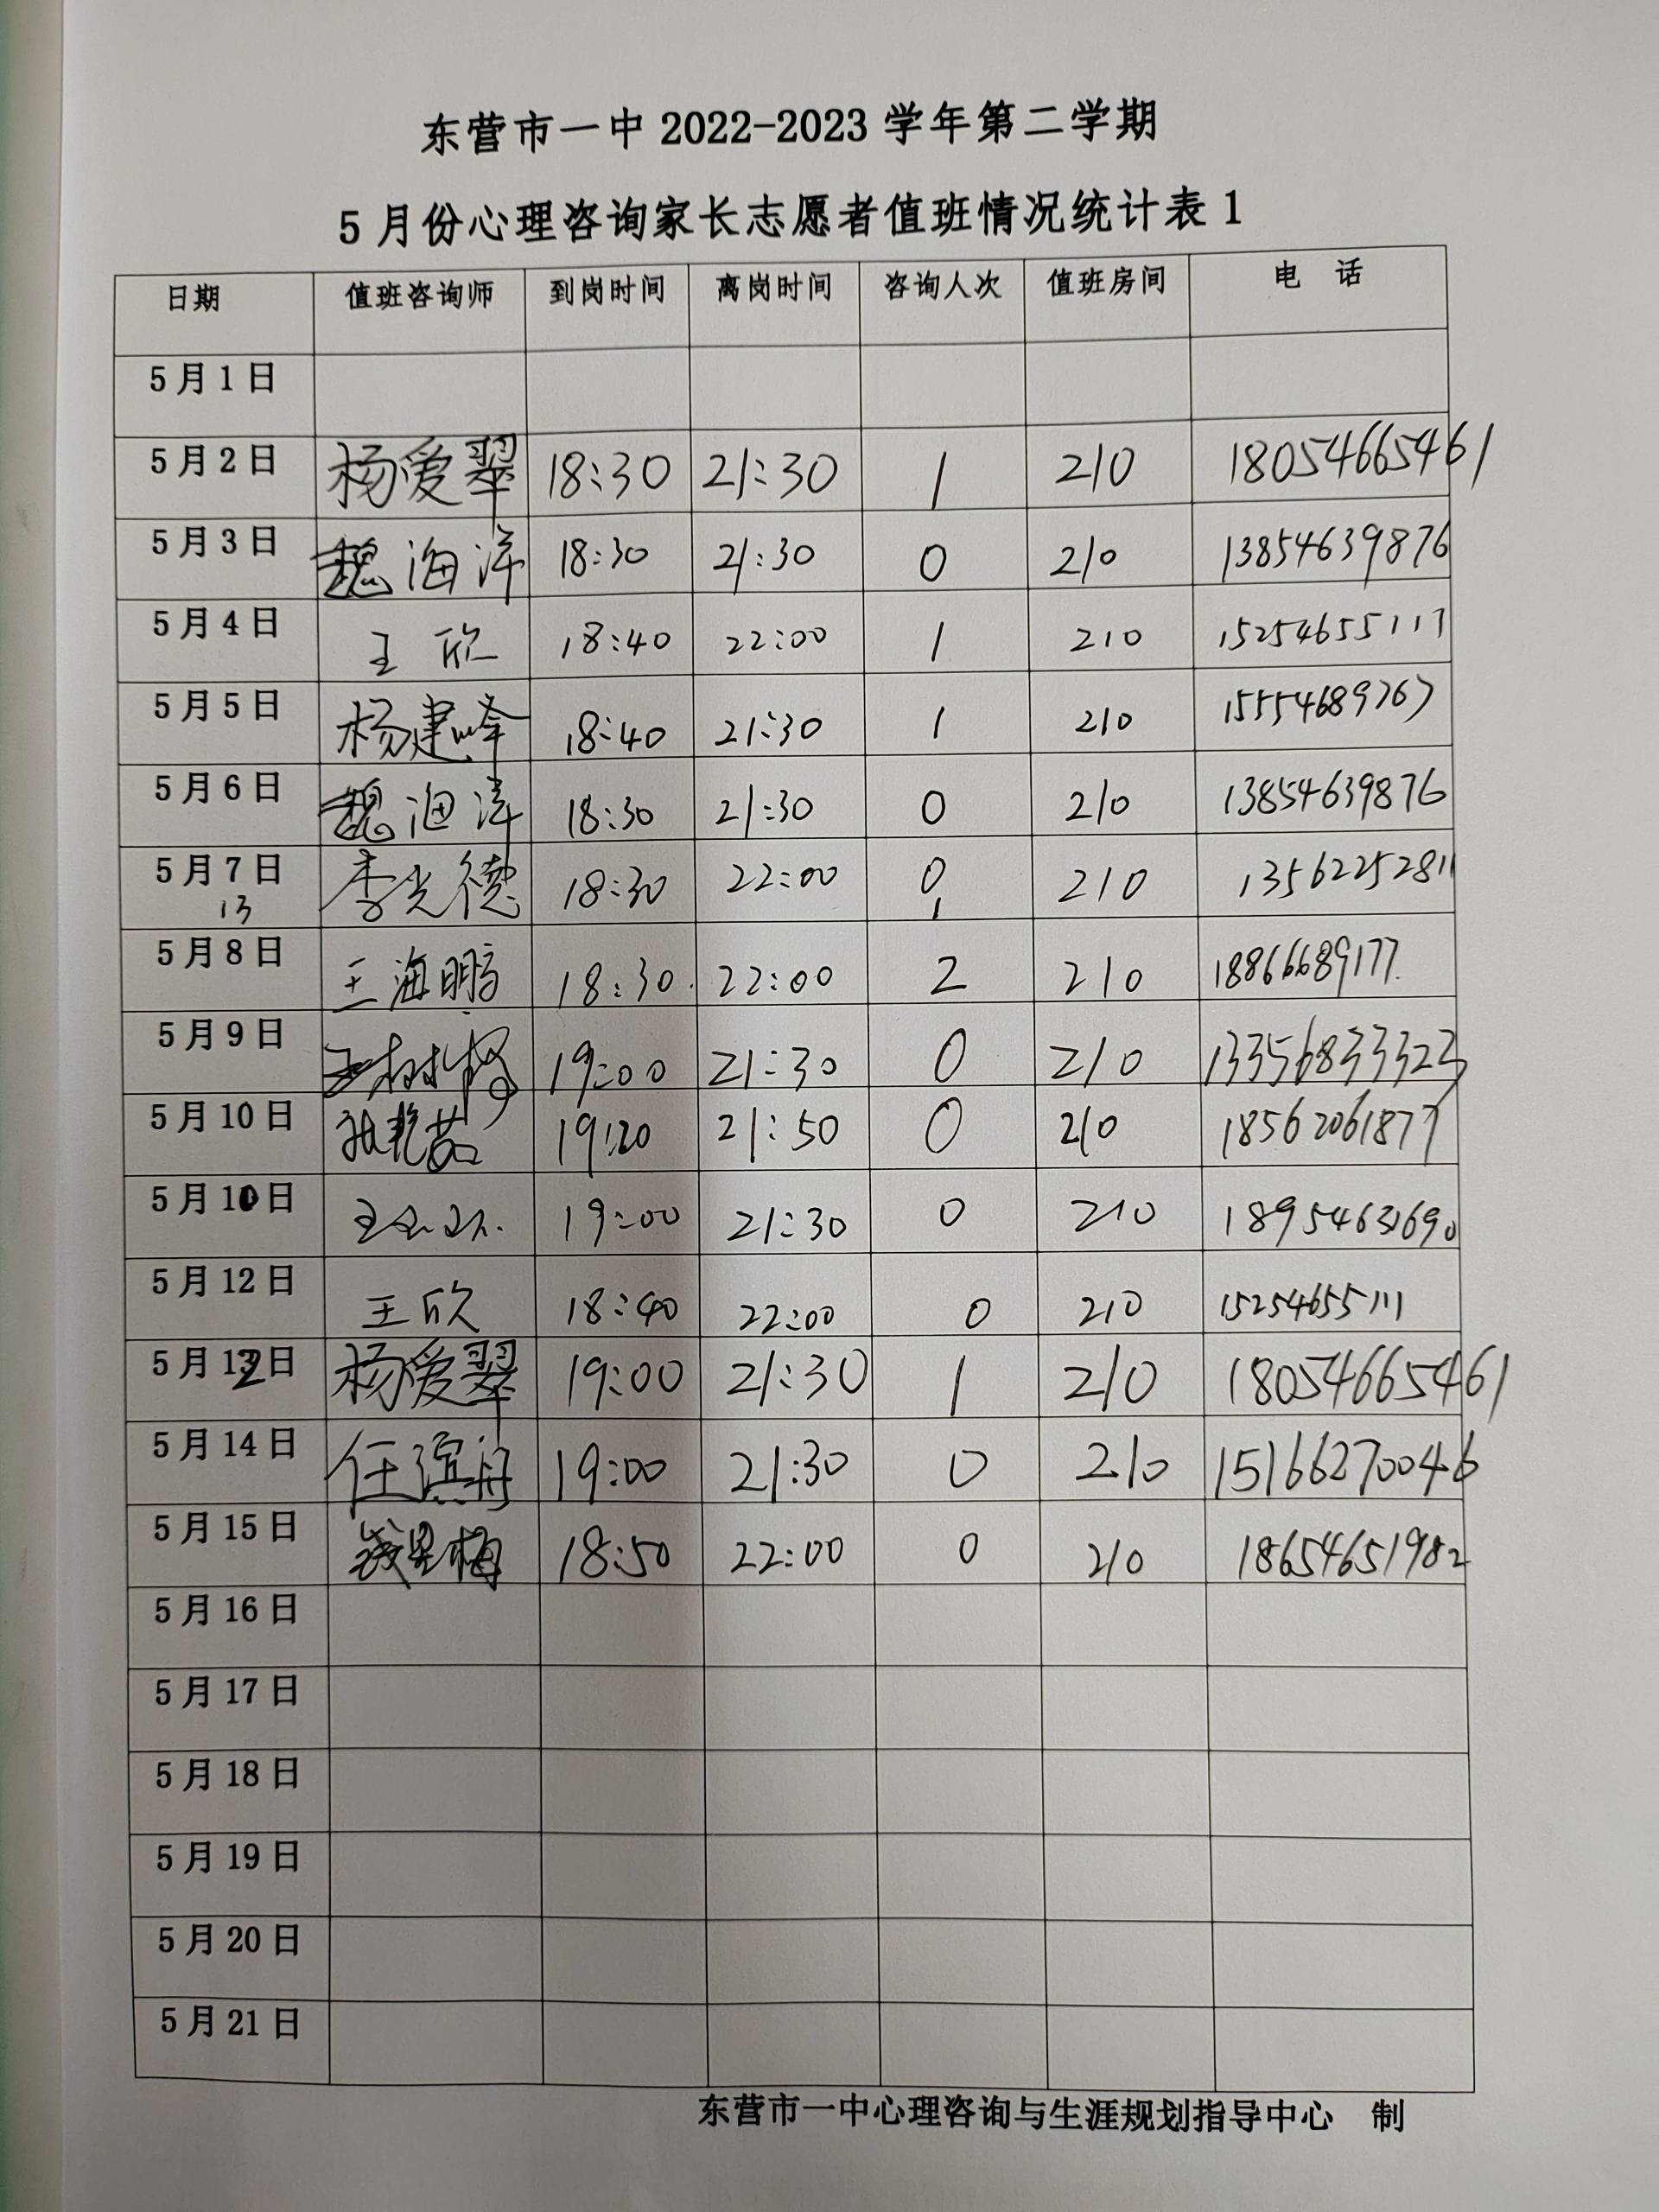 东营市一中 2022-2023 学年第二学期
5 月份心理咨询家长志愿者值班情况统计表 1
日期 值班咨询师 到岗时间 离岗时间 咨询人次 值班房间 电 话
5 月 1 日
5 月 2 日 杨爱翠 18:30 21:30 1 210 18054665461
5 月 3 日 魏海洋 18:30 21:30 0 210 13854639876
5 月 4 日 王欣 18:40 22:00 1 210 15254655111
5 月 5 日 杨建峰 18:40 21:30 1 210 15554689767
5 月 6 日 魏海洋 18:30 21:30 0 210 13854639876
5 月 7 日 李光德 18:30 22:00 0 210 13562252811
13 1
5 月 8 日 王海鹏 18:30 22:00 2 210 18866689177
5 月 9 日 19:00 21:30 0 210 13356833323
5 月 10 日 19:20 21:50 0 210 18562061877
5 月 10 日 19:00 21:30 0 210 18954631690
5 月 12 日 王欣 18:40 22:00 0 210 15254655111
5 月 12 日 杨爱翠 19:00 21:30 1 210 18054665461
5 月 14 日 任 19:00 21:30 0 210 15166270046
5 月 15 日 梅 18:50 22:00 0 210 18654651982
5 月 16 日
5 月 17 日
5 月 18 日
5 月 19 日
5 月 20 日
5 月 21 日
东营市一中心理咨询与生涯规划指导中心 制